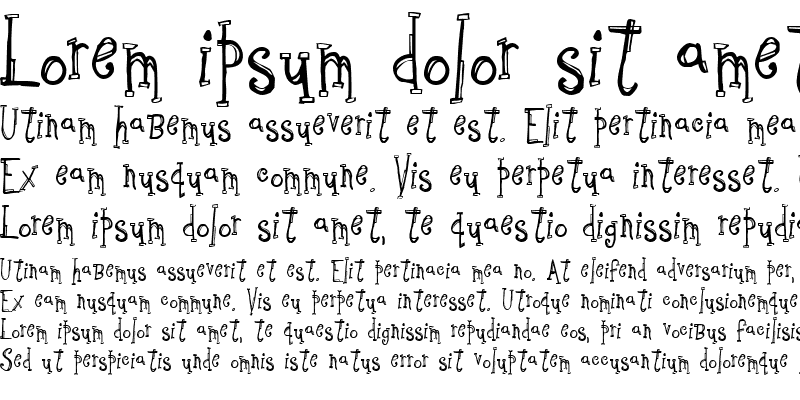 Lorem ipsum dolor sit amet
Utinam habemus assueverit et est. Elit pertinacia mea
Ex eam nusquam commune. Vis eu perpetua interesset.
Lorem ipsum dolor sit amet, te quaestio dignissim repudia
Utinam habemus assueverit et est. Elit pertinacia mea no. At eleifend adversarium per,
Ex eam nusquam commune. Vis eu perpetua interesset. Utroque nominati conclusionemque
Lorem ipsum dolor sit amet, te quaestio dignissim repudiandae eos, pri an vocibus facilisis
Sed ut perspiciatis unde omnis iste natus error sit voluptatem accusantium doloremque